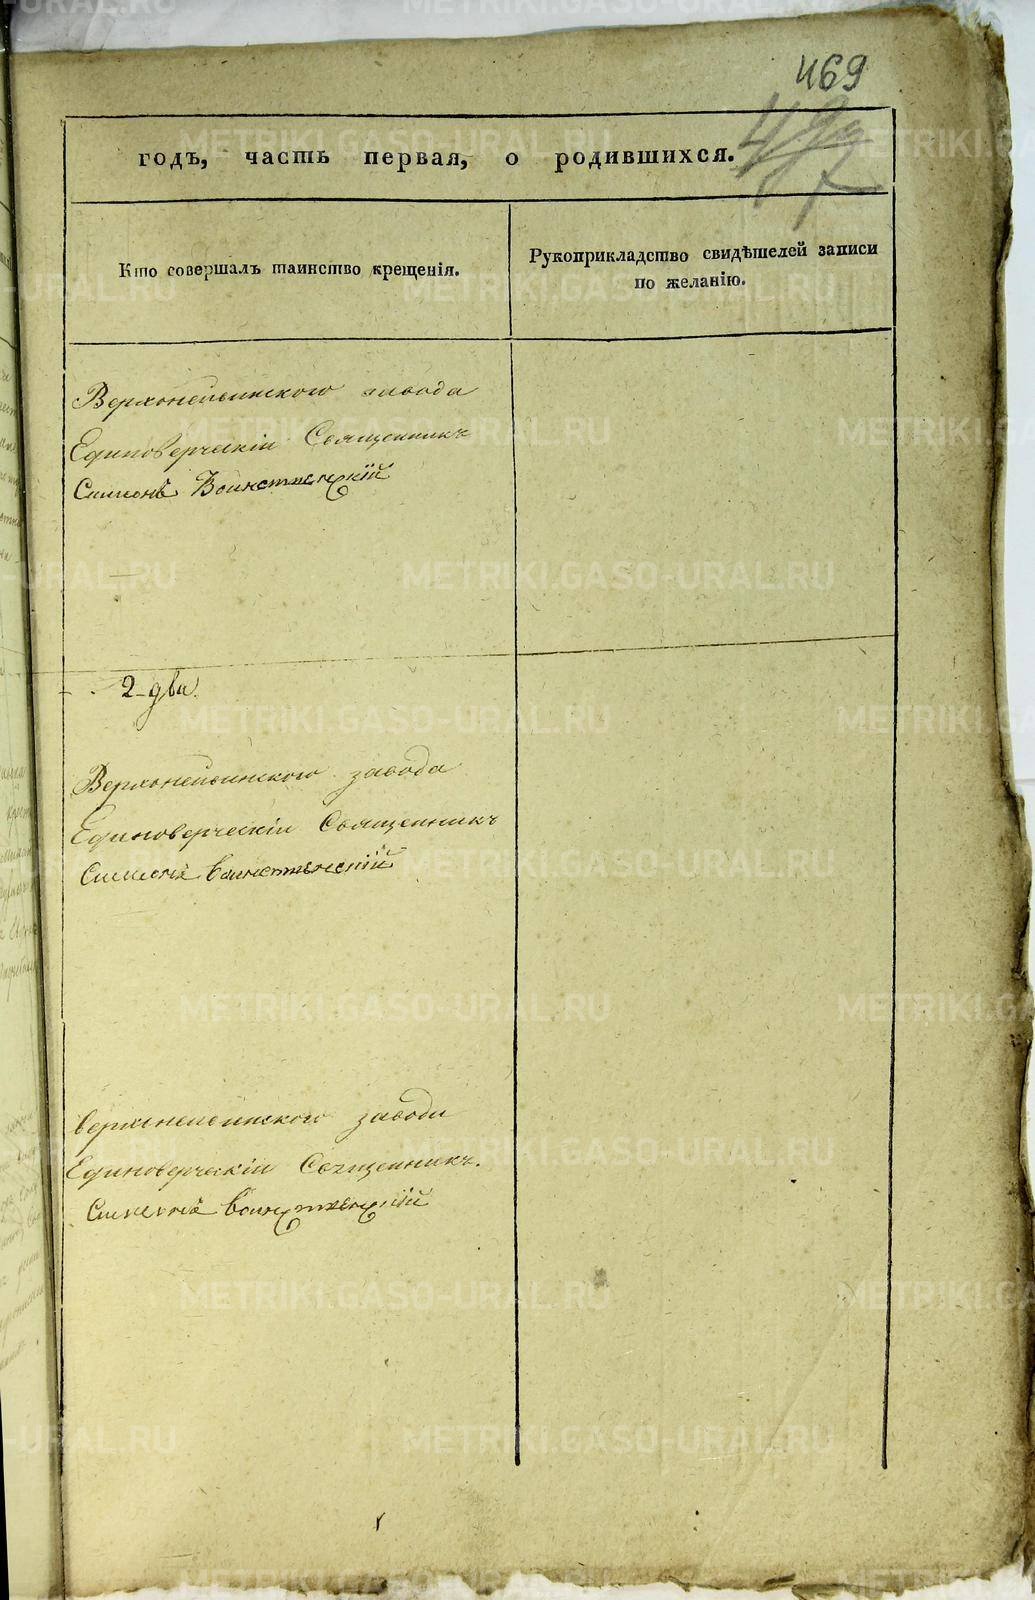 469
годъ, часть первая, о родившихся.
Кто совершалъ таинство крещенія.
Рукоприкладство свидѣтелей записи
по желанію.
Верхнейвинского завода
Единоверческіи Священникъ
Симеонъ Воинственскій
2 два.
Верхнейвинского завода
Единоверческіи Священникъ
Симеонъ воинственскій
верхнейвинского завода
Единоверческіи Священникъ.
Симеонъ воинственскій
METRIKI.GASO-URAL.RU